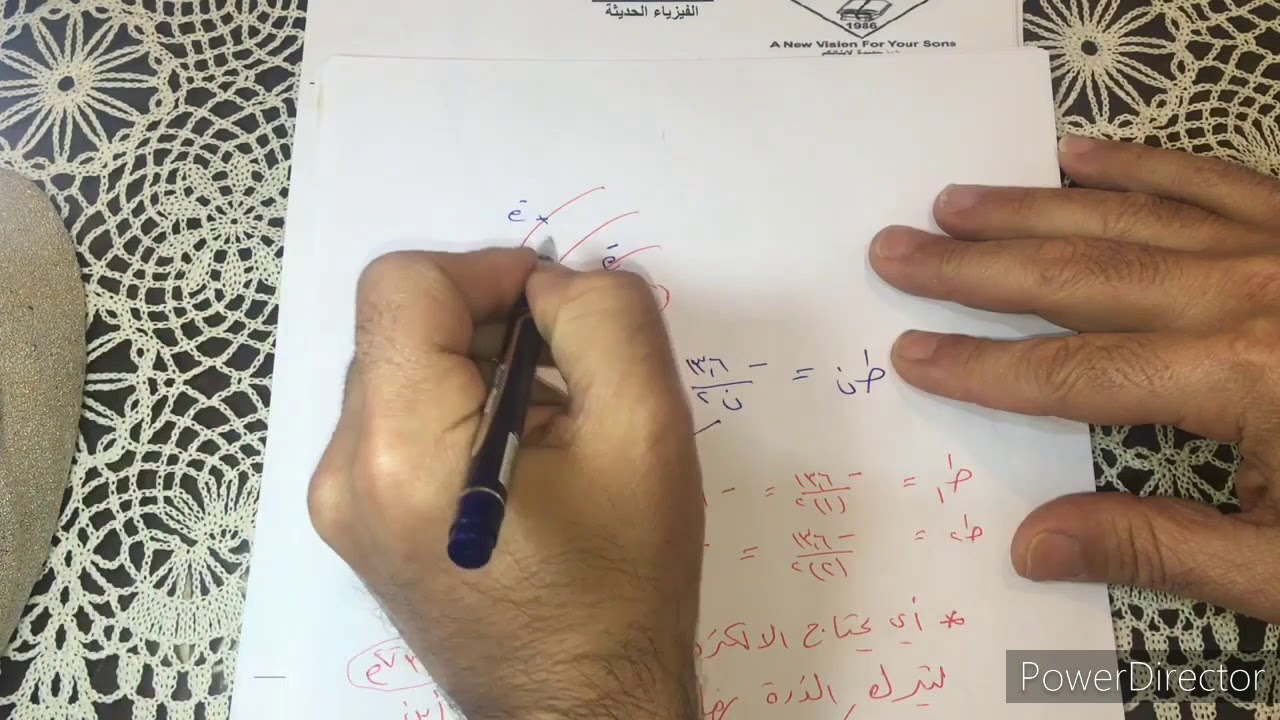 الفيزياء الحديثة
1986
A New Vision For Your Sons
e⁻
e⁻
طن = - ١٣,٦ / ن٢
ط١ = - ١٣,٦ / (١)٢ = -
ط٢ = - ١٣,٦ / (٢)٢ = -
* أي يحتاج
ev
ليترك الذرة
PowerDirector